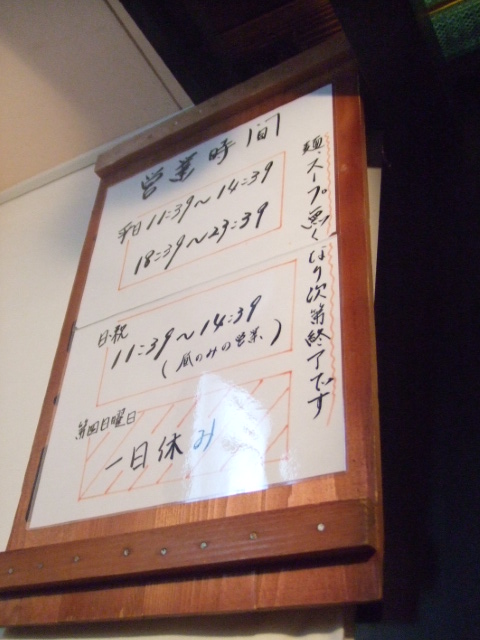 営業時間
平日 11:39～14:39
18:39～23:39
日・祝
11:39～14:39
(昼のみの営業)
第四日曜日
一日休み
麺、スープ無くなり次第終了です